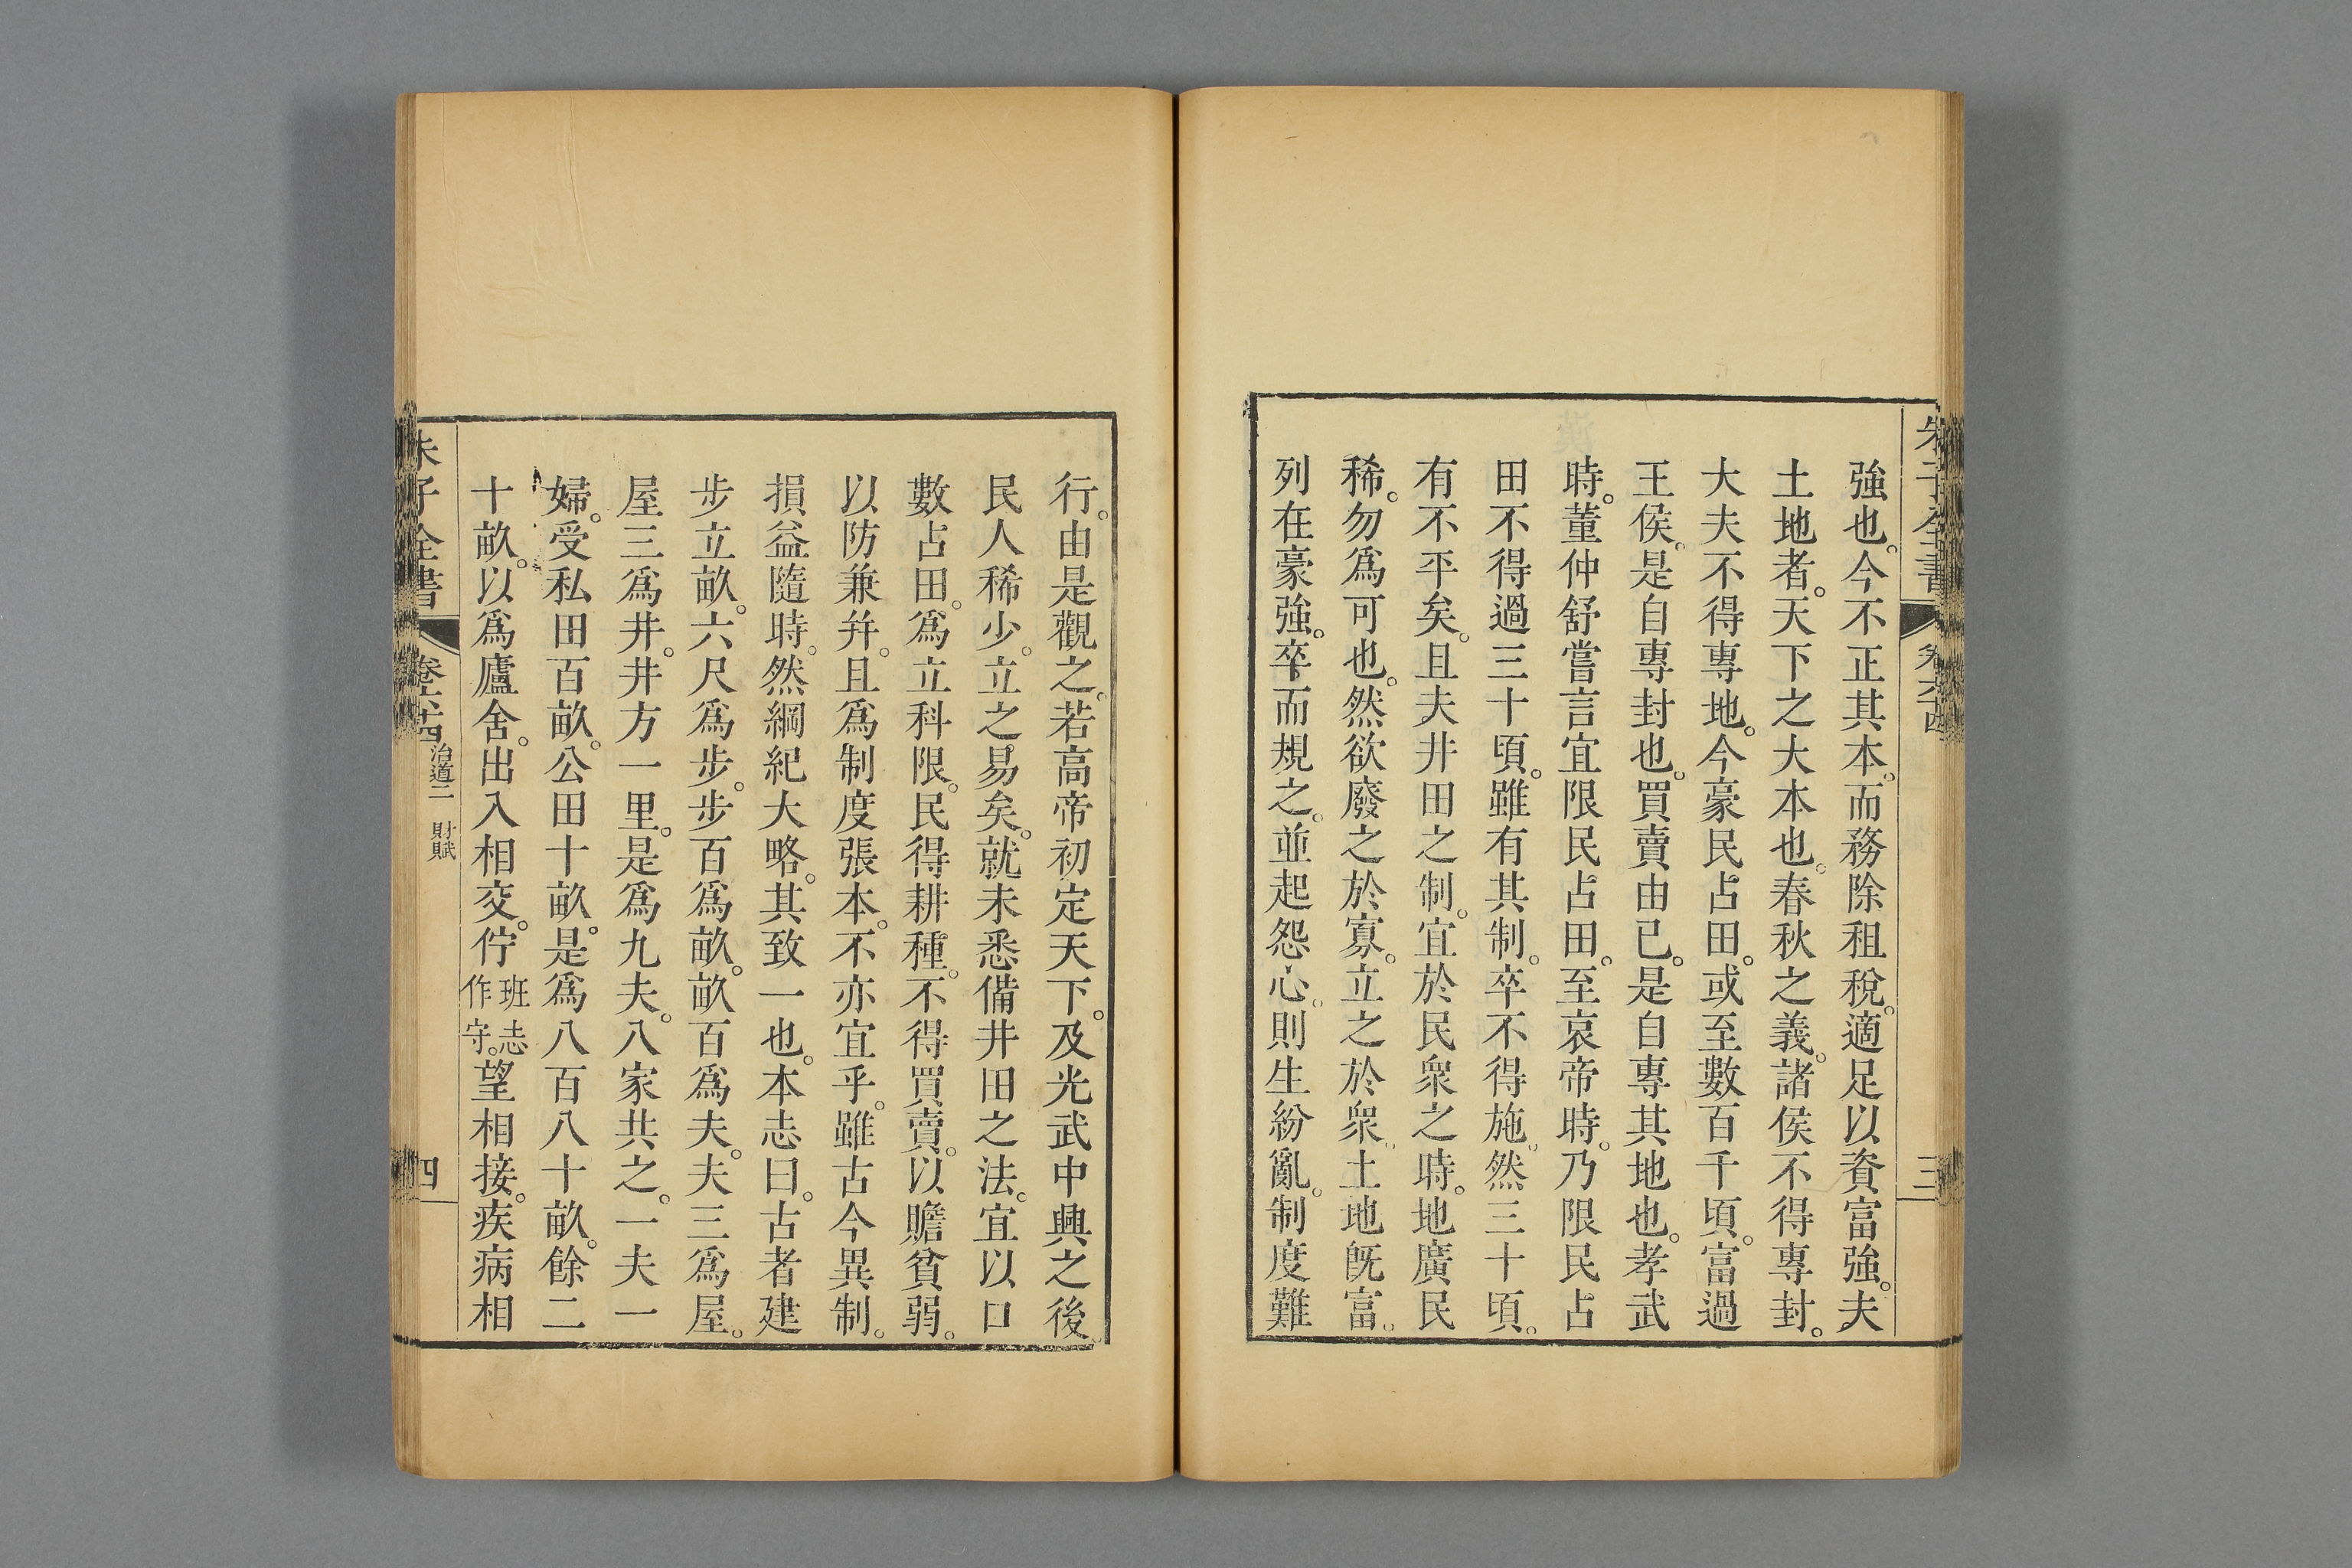 朱子全書 卷六十四 三
強也。今不正其本。而務除租稅。適足以資富強。夫
土地者。天下之大本也。春秋之義。諸侯不得專封。
大夫不得專地。今豪民占田。或至數百千頃。富過
王侯。是自專封也。買賣由己。是自專其地也。孝武
時。董仲舒嘗言宜限民占田。至哀帝時。乃限民占
田不得過三十頃。雖有其制。卒不得施。然三十頃。
有不平矣。且夫井田之制。宜於民衆之時。地廣民
稀。勿爲可也。然欲廢之於寡。立之於衆。土地旣富。
列在豪強。卒而規之。並起怨心。則生紛亂。制度難
行。由是觀之。若高帝初定天下。及光武中興之後。
民人稀少。立之易矣。就未悉備井田之法。宜以口
數占田。爲立科限。民得耕種。不得買賣。以贍貧弱。
以防兼幷。且爲制度張本。不亦宜乎。雖古今異制。
損益隨時。然綱紀大略。其致一也。本志曰。古者建
步立畝。六尺爲步。步百爲畝。畝百爲夫。夫三爲屋。
屋三爲井。井方一里。是爲九夫。八家共之。一夫一
婦。受私田百畝。公田十畝。是爲八百八十畝。餘二
十畝。以爲廬舍。出入相交。佇班志作守。望相接。疾病相
朱子全書 卷六十四 治道二 財賦 四